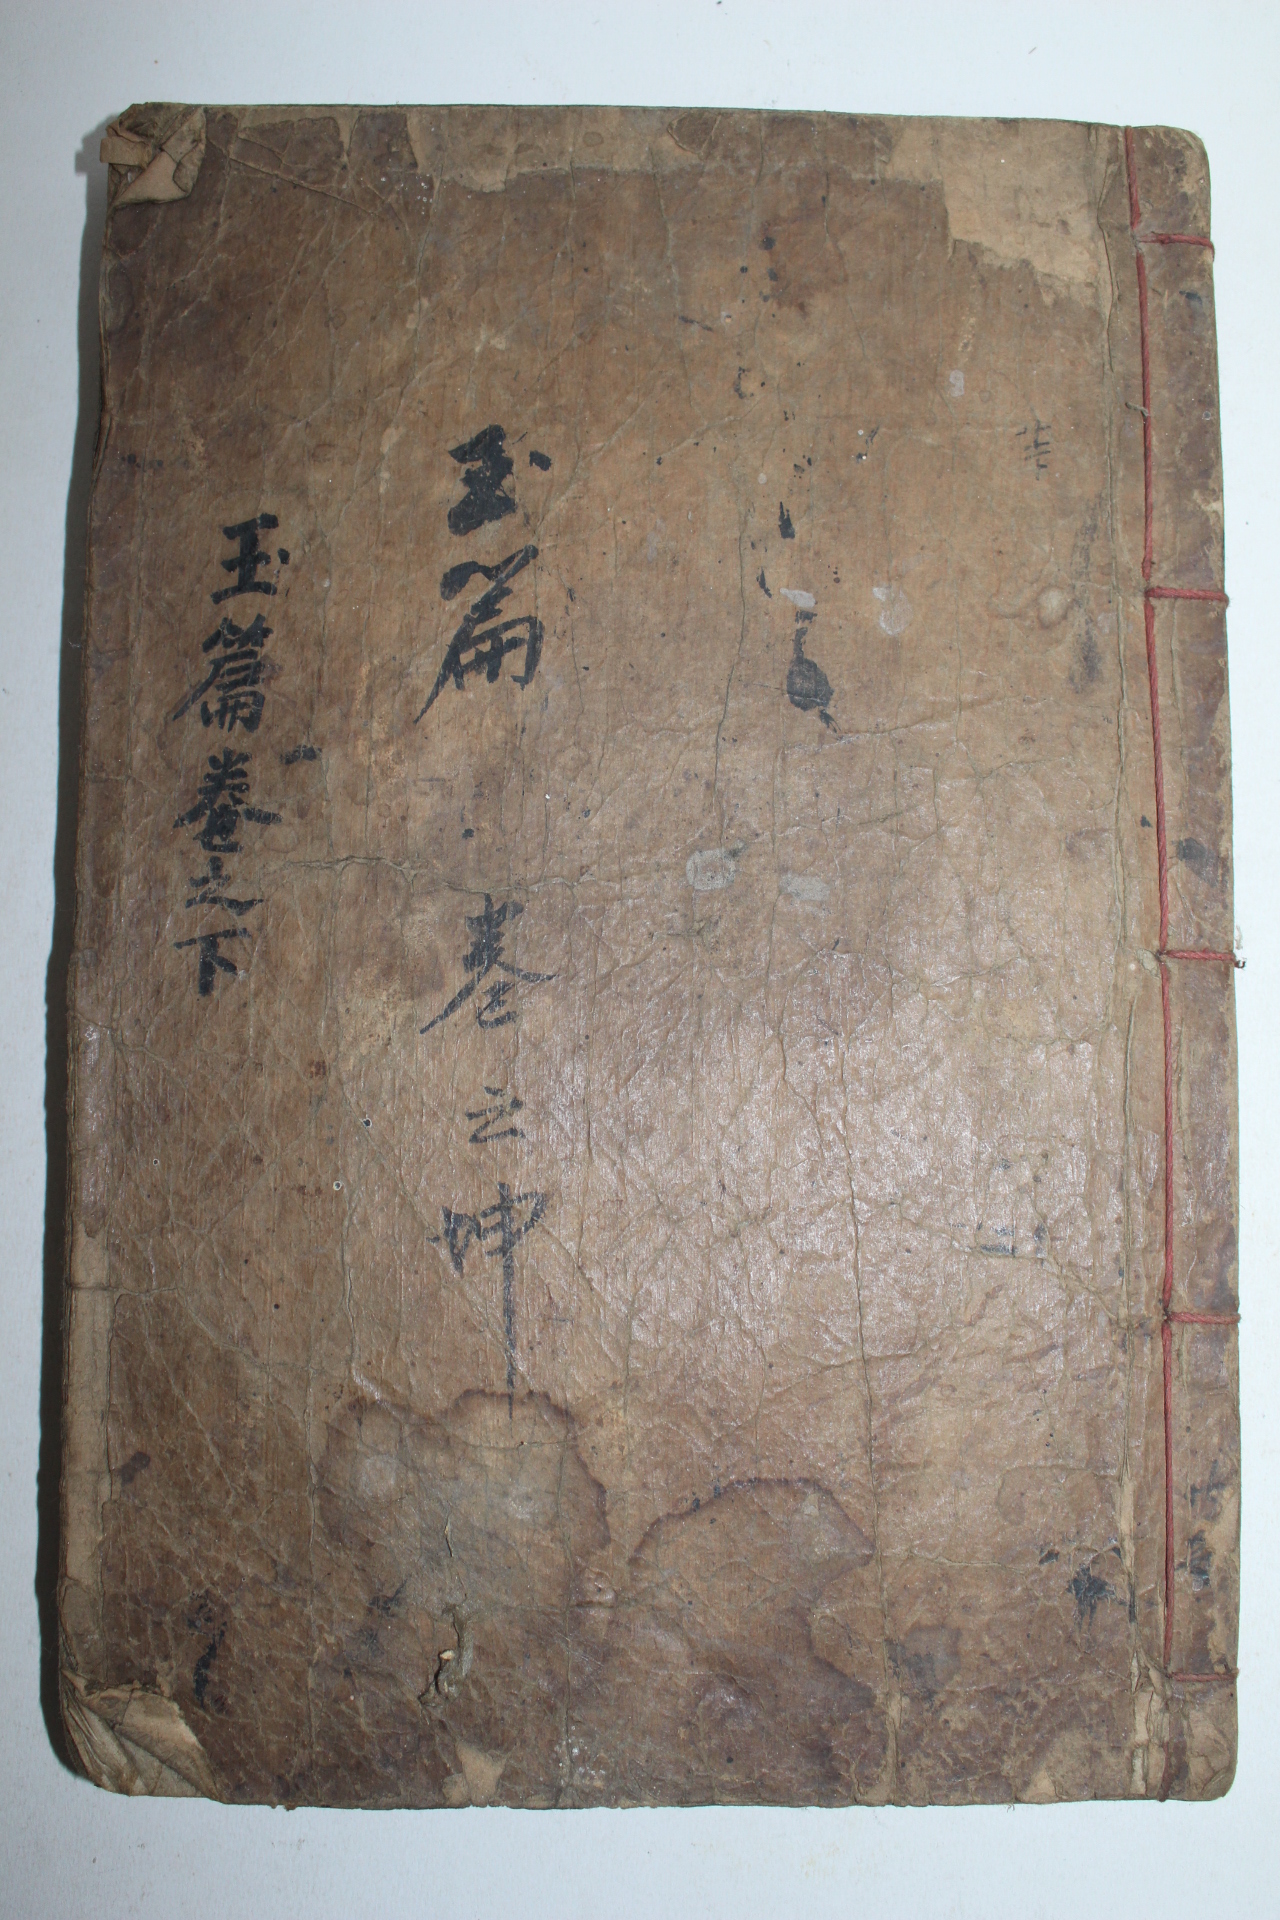 玉篇 卷之坤
玉篇卷之下